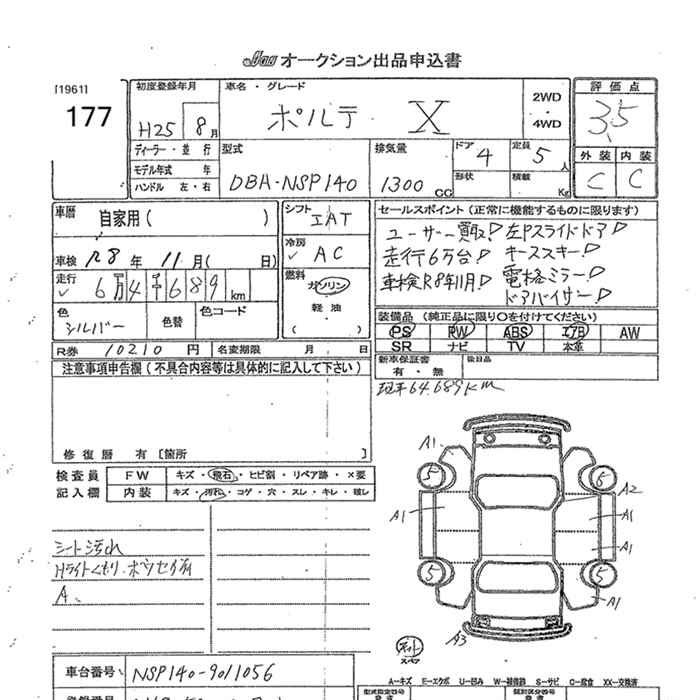 JAA オークション出品申込書
[1961]
177
初度登録年月
H25 8月
車名・グレード
ポルテ X
2WD
・
4WD
評価点
3.5
ディーラー・並行
モデル年式 年
ハンドル 左・右
型式
DBA-NSP140
排気量
1300 CC
ドア 4
定員 5 人
形状
積載 Kg
外装 内装
C C
車歴
自家用( )
シフト
IAT
セールスポイント(正常に機能するものに限ります)
ユーザー買取! 左Pスライドドア!
走行6万台! キーススキー!
車検R8年11月! 電格ミラー!
ドアバイザー!
車検 R8年 11月( 日)
冷房
AC
走行
6万4千689km
燃料
ガソリン
軽油
( )
色
シルバー
色替
色コード
装備品(純正品に限り○を付けてください)
PS PW ABS エアB AW
SR ナビ TV 本革
R券 10210円
名変期限 月 日
新車保証書
有・無
後日品
現車64,689km
注意事項申告欄(不具合内容等は具体的に記入して下さい)
修復歴 有[箇所 ]
検査員
記入欄
FW キズ・飛石・ヒビ割・リペア跡・×要
内装 キズ・汚れ・コゲ・穴・スレ・キレ・破レ
シート汚れ
Hライトくもり
A
A1
5
6
A2
A1
A1
A1
5
5
A1
A3
スペア
車台番号 NSP140-9011056
A-キズ E-エクボ U-凹み W-補修跡 S-サビ C-腐食 XX-交換済